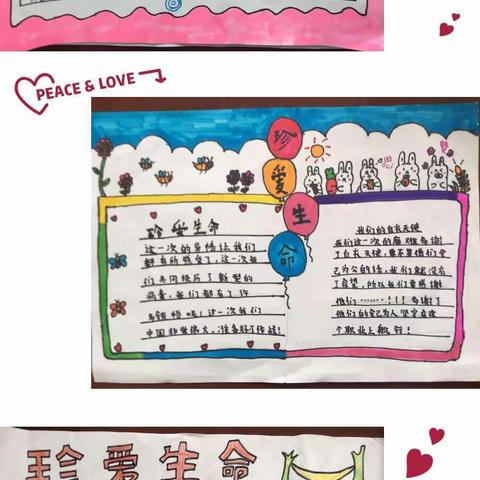 PEACE & LOVE
珍
爱
生
命
珍爱生命
这一次的疫情让我们
都有所感受了,这一次我
们共同经历了新型的
病毒,我们都有了许
这一次我们
中国非常伟大,准备好了作战!
我们的白衣天使
我们这一次的磨难多谢
了白衣天使,要不是他们舍
己为众的话,我们就没有
了希望,所以我们要感谢
他们……!!!多谢了
他们的舍己为人坚守在这
个职业上
珍爱生命